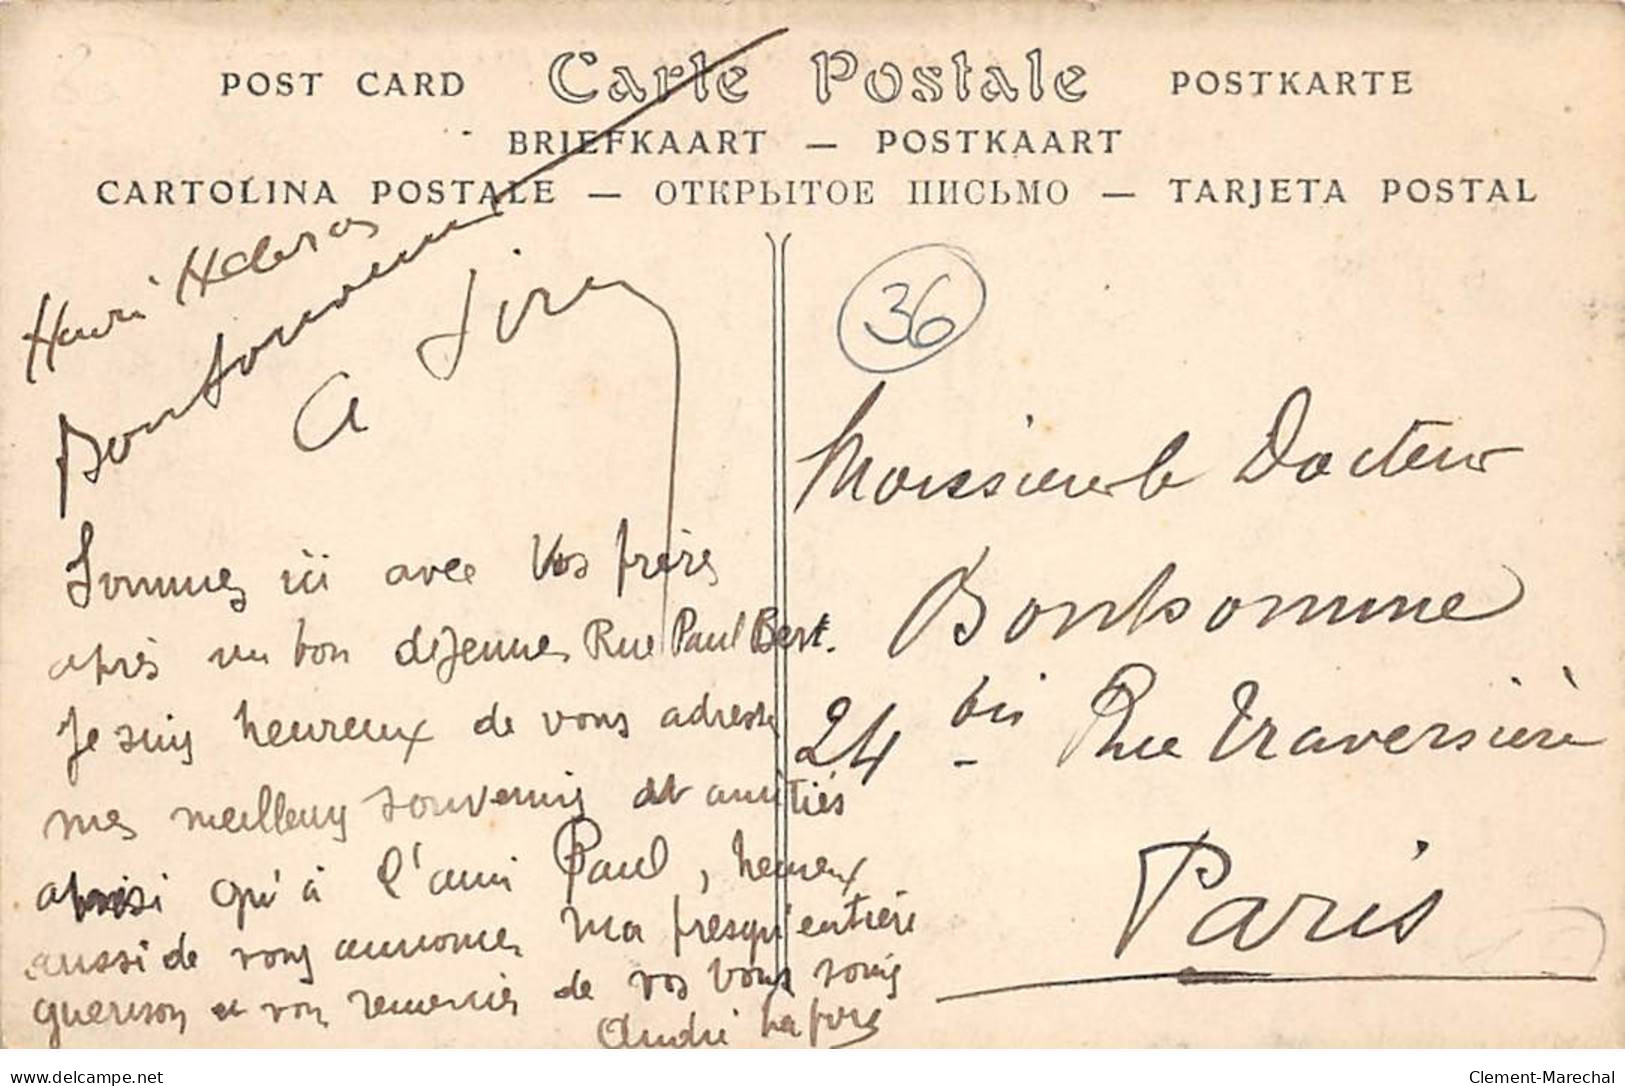 POST CARD Carte Postale POSTKARTE
BRIEFKAART — POSTKAART
CARTOLINA POSTALE — ОТКРЫТОЕ ПИСЬМО — TARJETA POSTAL
Henri
Bon souvenir
A
36
Sommes ici avec Vos frères
après un bon déjeuner Rue Paul Bert.
Je suis heureux de vous adresser
mes meilleurs souvenirs et amitiés
ainsi qu'à l'ami Paul, heureux
aussi de vous annoncer ma presqu'entière
guerison et vous remercier de vos bons soins
André
Monsieur le Docteur
Bonhomme
24 bis Rue Traversière
Paris
Clement-Marechal
delcampe.net